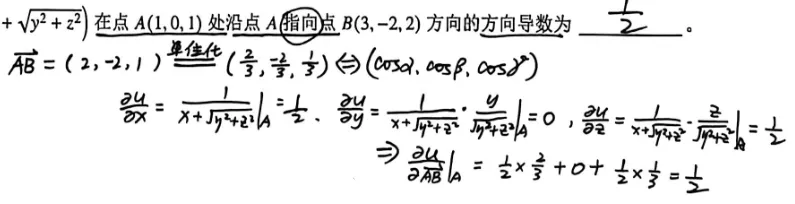 + √(y²+z²)) 在点 A(1,0,1) 处沿点 A 指向点 B(3,-2,2) 方向的方向导数为 1/2 。
AB→ = (2,-2,1) 单位化 (2/3, -2/3, 1/3) ⇔ (cosα, cosβ, cosγ)
∂u/∂x = 1/(x+√(y²+z²))|A = 1/2 、 ∂u/∂y = 1/(x+√(y²+z²)) · y/√(y²+z²)|A = 0 , ∂u/∂z = 1/(x+√(y²+z²)) · z/√(y²+z²)|A = 1/2
⇒ ∂u/∂AB→|A = 1/2 × 2/3 + 0 + 1/2 × 1/3 = 1/2